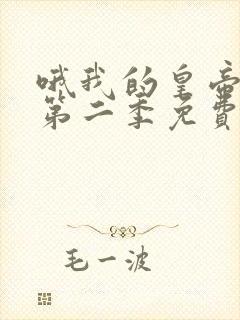 哦我的皇帝
第二季免费
毛一波